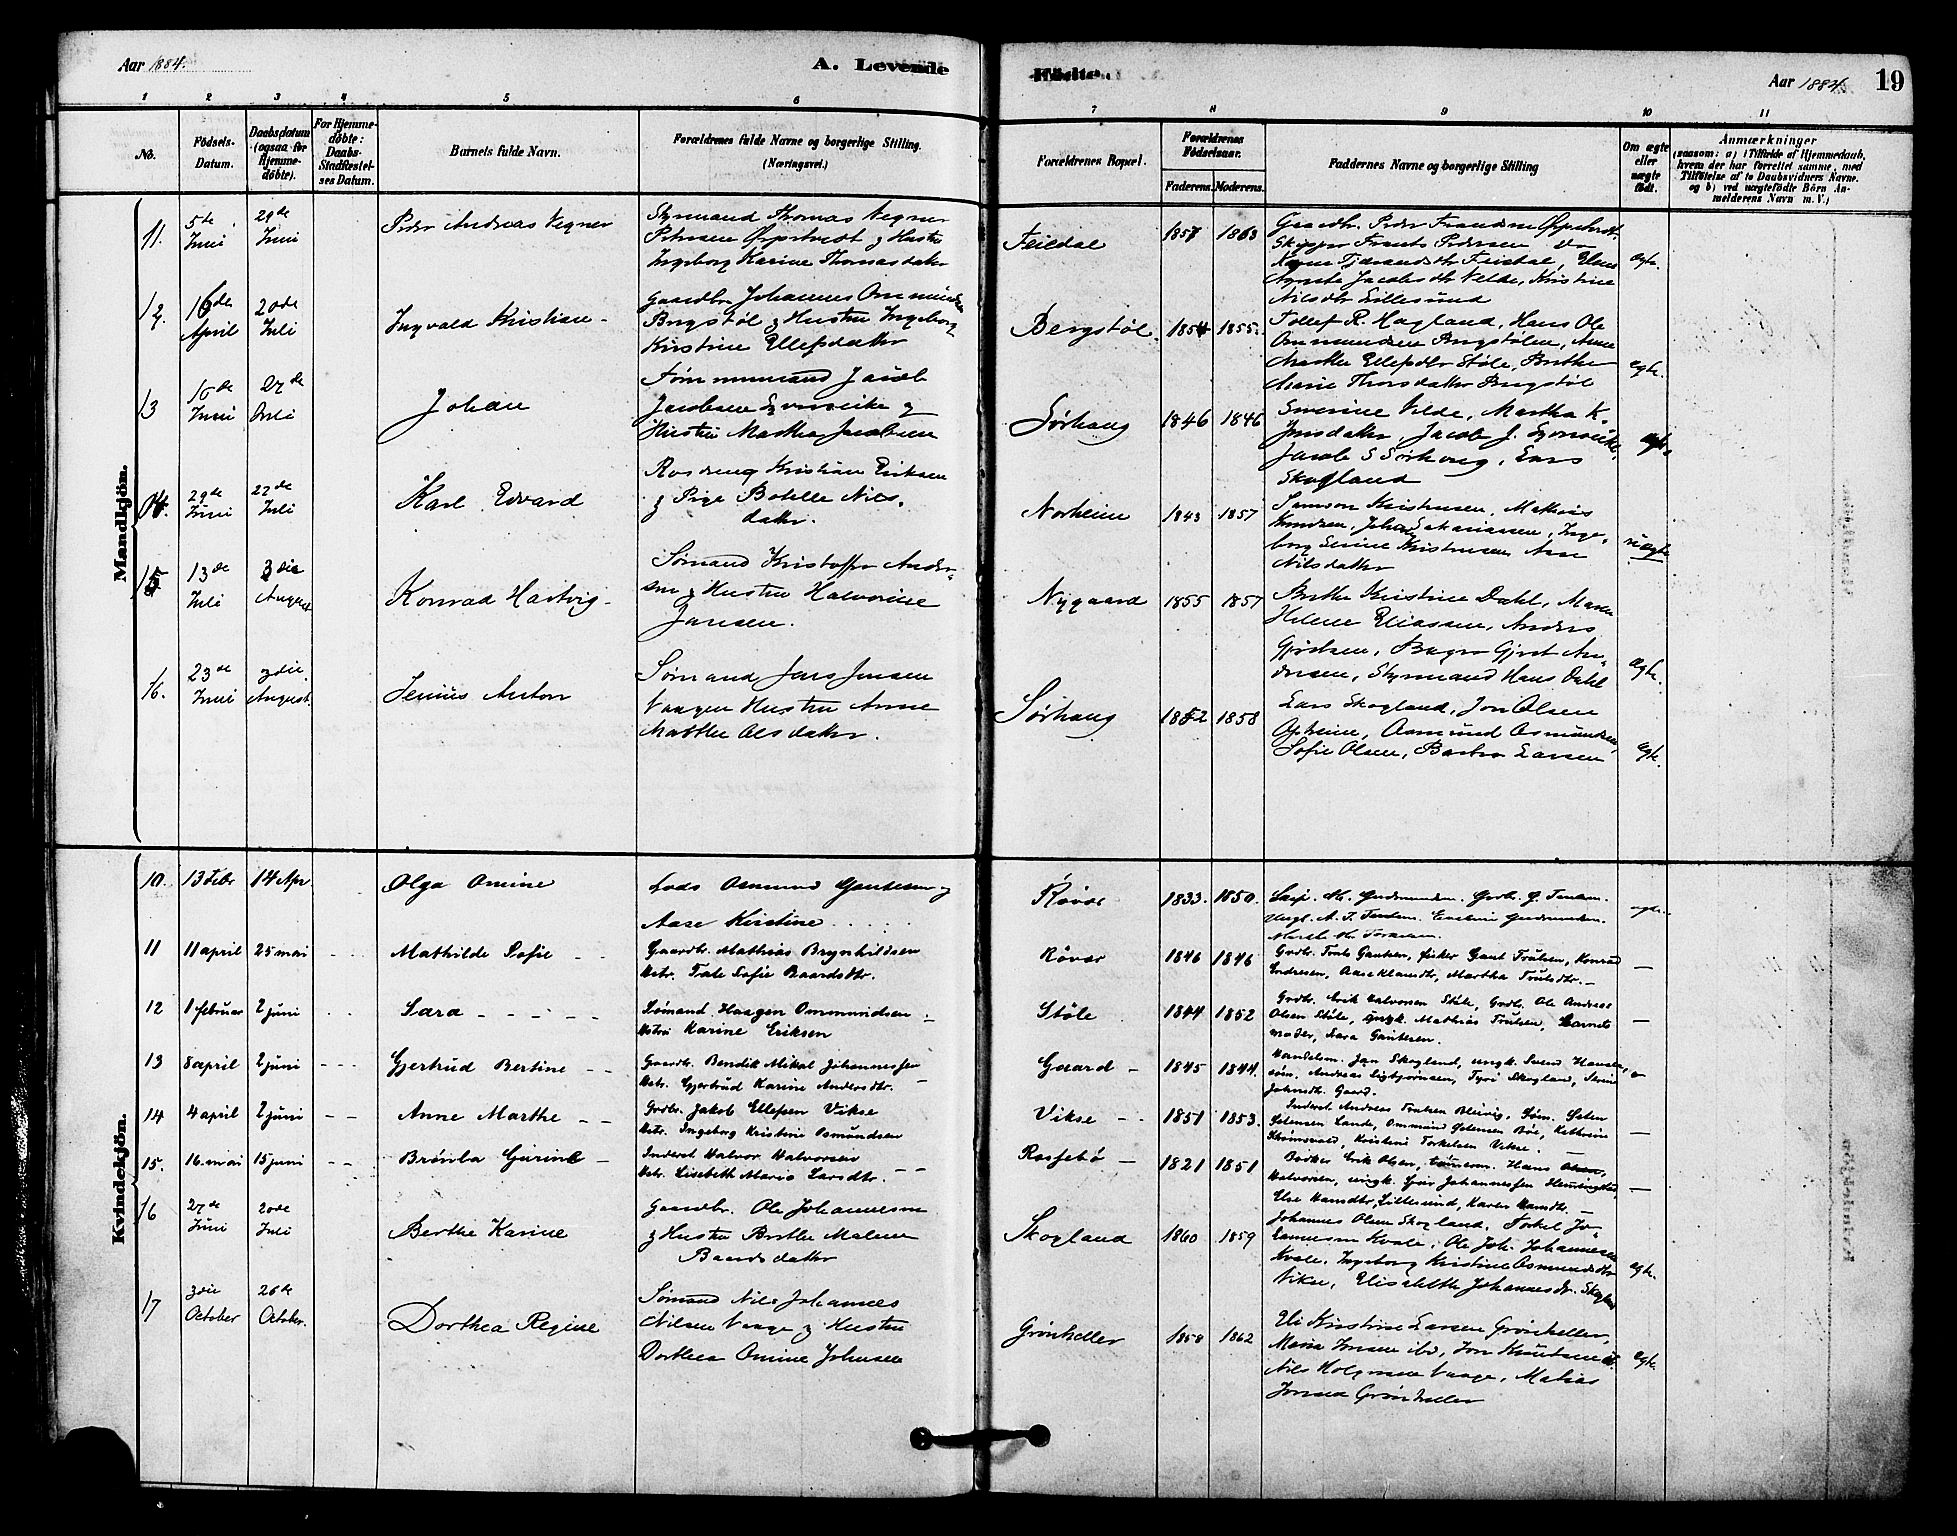 Aar 1884.
A. Levende
Födte.
Aar 1884.
19
1 2 3 4 5 6
7 8 9 10 11
No.
Födsels-Datum.
Daabsdatum (ogsaa för Hjemme-döbte).
For Hjemme-döbte: Daabs-Stadfæstel-ses Datum.
Barnets fulde Navn.
Forældrenes fulde Navne og borgerlige Stilling.
(Næringsvei.)
Forældrenes Bopæl.
Forældrenes Födselsaar.
Faderens. Moderens.
Faddernes Navne og borgerlige Stilling
Om ægte eller uægte födt.
Anmærkninger
(saasom: a) i Tilfælde af Hjemmedaab,
hvem der har forrettet samme, med
Tilföielse af to Daabsvidners Navne,
og b) ved uægtefödte Börn An-
melderens Navn m. V.)
Mandkjön.
11. 5de Juni 29de Juni Peder Andreas Vegner
Styrmand Thomas Vegner
Petersen & Hustru
Ingeborg Karine Thomasdatter
Feildal 1857 1863
Gaardbr. Peder Frandsen
Skipper Frants Pedersen
Jacobsdtr Velde, Kristine
Nilsdtr Lillesund
ægte.
12. 16de April 20de Juli Ingvald Kristian
Gaardbr Johannes Ommundsen
Bergstöl & Hustru Ingeborg
Kristine Ellefsdatter
Bergstöl. 1854 1855.
Tollef R. Hagland, Hans Ole
Ommundsen Bergstölen, Anne
Marthe Ellefsdtr Stöle, Berthe
Marie Thorsdatter Bergstöl
ægte.
13 15de Juni 27de Juli Johan
Tömmermand Jacob
Jacobsen &
Hustru Martha Jacobsen
Sörhaug 1846 1846
Severine Velde, Martha K.
Jensdatter, Jacob J.
Jacob S Sörhaug, Lars
Skogland
ægte.
14. 29de Juni 27de Juli Karl Edvard
Kristian Eriksen
& Pige Botelle Nils-
datter.
Norheim 1843 1857
Samson Kristensen, Mathias
Knudsen, Johan Sakariassen, Inge-
borg Serine Kristensen, Ane
Nilsdatter
uægte
15 13de Juli 3die August Konrad Hartvig
Sömand Kristoffer Ander-
sen & Hustru Halvorine
Jansen.
Nygaard 1855 1857
Berthe Kristine Dahl, Maren
Helene Eliassen, Anders
Gjertsen, Bager Gjert An-
dersen, Styrmand Hans Dahl
ægte.
16. 23de Juni 3die August. Jenius Anton
Sömand Jens Jensen
Vaagen Hustru Anne
Marthe Olsdatter.
Sörhaug 1852 1858
Lars Skogland, Jon Olsen
Opheim, Aamund Osmundsen,
Sofie Olsen, Barbra Larsen
ægte.
Kvindekjön.
10. 13 Febr 14 Apr Olga Omine
Lods Osmund Gautesen og
Aase Kristine
Rövær 1833. 1850.
ægte.
11 11 april 25 mai Mathilde Sofie
Gaardbr. Mathias Brynhildsen
Hstr. Tale Sofie Baardsdtr.
Rövær 1846 1846
Grdbr. Truls Gautsen, fisker Gaut Trulsen, Konrad
Endresen, Aase Klausdtr, Martha Trulsdtr. —
—
12 1 februar 2 juni Sara
Sömand Haagen Ommundsen
Hstru Karine Eriksen
Stöle 1844 1852
Grdbr. Erik Halvorsen Stöle, Grdbr. Ole Andreas
Olsen Stöle, Ungk. Mathias Trulsen, Barnets
moder, Sara Gautesen.
—
13 8 april 2 juni Gjertrud Bertine
Gaardbr. Bendik Mikal Johannessen
Hstr. Gjertrud Karine Andersdtr.
Gaard 1845 1844.
Handelsm. Jan Skogland, ungk. Svend Hansen,
söm. Andreas Sigbjörnsen, Tyri Skogland, Serine
Johnsdtr. Gaard.
14 4 april 2 juni Anne Marthe
Grdbr. Jakob Ellefsen Vikse
Hstr. Ingeborg Kristine Osmundsen
Vikse 1851 1853.
Inderst Andreas Trulsen Bleivig, Söm. Salen
Salemsen Lande, Ommund Salemsen Böe, Kathrine
Strömsvold, Kristine Torkelsen Vikse.
—
15. 16. mai 15 juni Brönla Gurine
Inderst Halvor Halvorsen
Hstr. Lisebeth Maria Larsdtr.
Rossebö 1821 1851
Bödker Erik Olsen, tömerm. Hans Olsen,
Halvorsen, ungk. Johannessen
Else Hansdtr, Lillesund, Karen Hansdtr. —
—
16 27de Juni 20de Juli Berthe Karine
Gaardbr. Ole Johannesen
& Hustru Berthe Malene
Baardsdatter
Skogland 1860 1859
Johannes Olsen Skogland, Tokel Jo-
hannesen Kvale, Ole Joh. Johannesen
Kvale, Ingeborg Kristine Osmundsdtr
Vikse, Elisabeth Johannesdtr. Skogland
ægte.
17 3die October 26de October. Dorthea Regine
Sömand Nils Johannes
Nilsen Vaage & Hustru
Dorthea Omine Johnsen
Grönheller 1858 1862
Eli Kristine Larsen Grönheller,
Maria Jonsen ibd, Jon Knudsen
Nils Holgersen Vaage, Matias
Jonsen Grönheller
ægte.